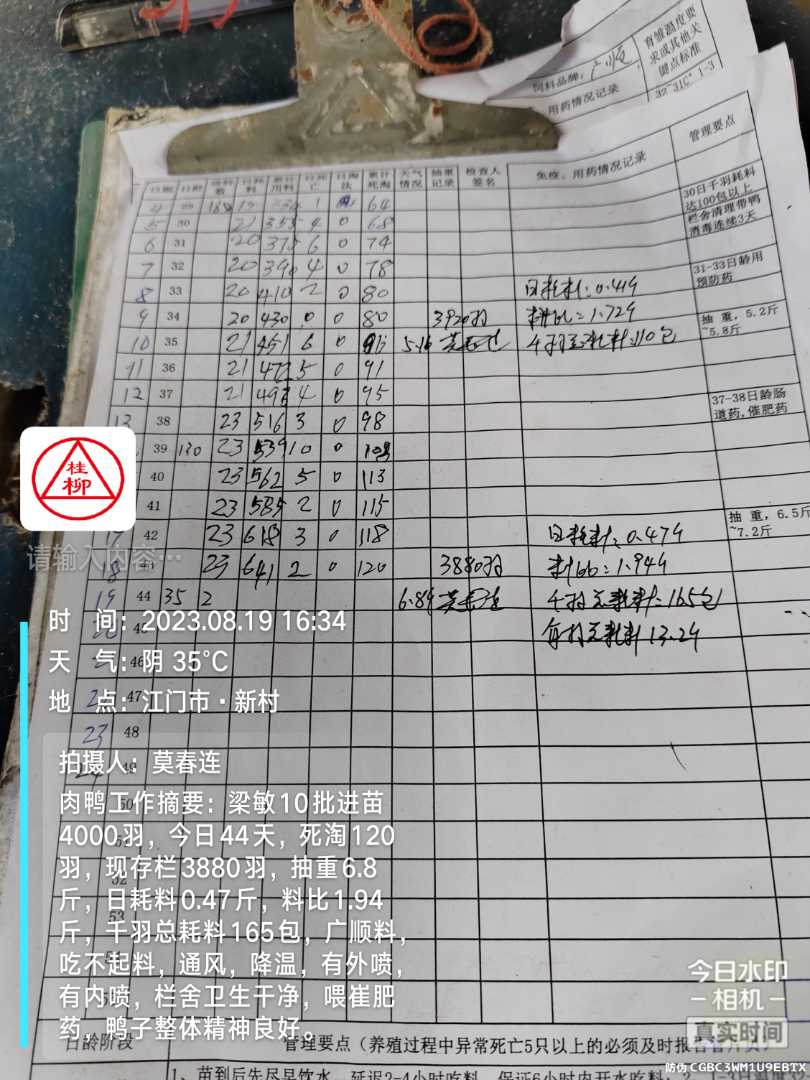 育雏温度要
求或其他关
键点标准
饲料品牌：广顺
用药情况记录
32-31C° 1-3
日龄
日死亡
日淘汰
累计死淘
天气情况
抽重记录
检查人签名
免疫、用药情况记录
管理要点
4 29 1 64
30日千羽耗料
达100包以上
栏舍清理带鸭
消毒连续3天
5 30 21 355 4 0 68
6 31 20 375 6 0 74
7 32 20 390 4 0 78
31-33日龄用
预防药
8 33 20 410 2 0 80 日耗料：0.41斤
9 34 20 430 0 0 80 3920羽 料比：1.72斤
抽 重，5.2斤
~5.8斤
10 35 21 451 6 0 5.16 千羽总耗料：110包
11 36 21 472 5 0 91
12 37 21 493 4 0 95
37-38日龄肠
道药，催肥药
13 38 23 516 3 0 98
39 130 23 539 10 0 108
40 23 562 5 0 113
41 23 585 2 0 115
抽 重，6.5斤
~7.2斤
17 42 23 618 3 0 118 日耗料：0.47斤
18 43 23 641 2 0 120 3880羽 料比：1.94斤
19 44 35 2 6.8斤 莫春连 千羽总耗料：165包
45 每羽总耗料13.2斤
46
47
23 48
49
50
52
53
桂
柳
请输入内容…
时 间：2023.08.19 16:34
天 气：阴 35℃
地 点：江门市·新村
拍摄人：莫春连
肉鸭工作摘要：梁敏10批进苗
4000羽，今日44天，死淘120
羽，现存栏3880羽，抽重6.8
斤，日耗料0.47斤，料比1.94
斤，千羽总耗料165包，广顺料，
吃不起料，通风，降温，有外喷，
有内喷，栏舍卫生干净，喂崔肥
药，鸭子整体精神良好。
今日水印
相机
真实时间
防伪 CGBC3WM1U9EBTX
日龄阶段
管理要点（养殖过程中异常死亡5只以上的必须及时报告
1、苗到后先尽早饮水，延迟2-4小时吃料，保证6小时内开水吃料